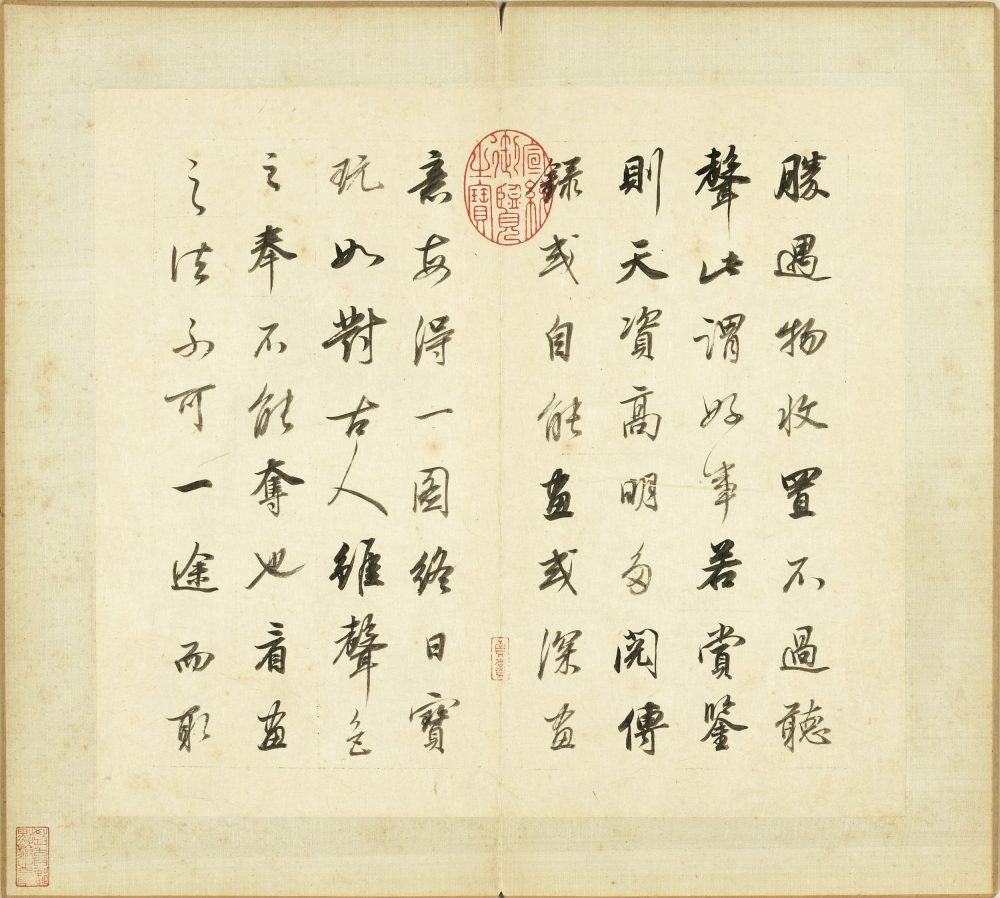 勝遇物收置不過聽
聲此謂好事若賞鑒
則天資高明多閱傳
録或自能畫或深畫
意每得一圖終日寶
玩如對古人雖聲色
之奉不能奪也看畫
之法不可一途而取
宣統御覽之寶